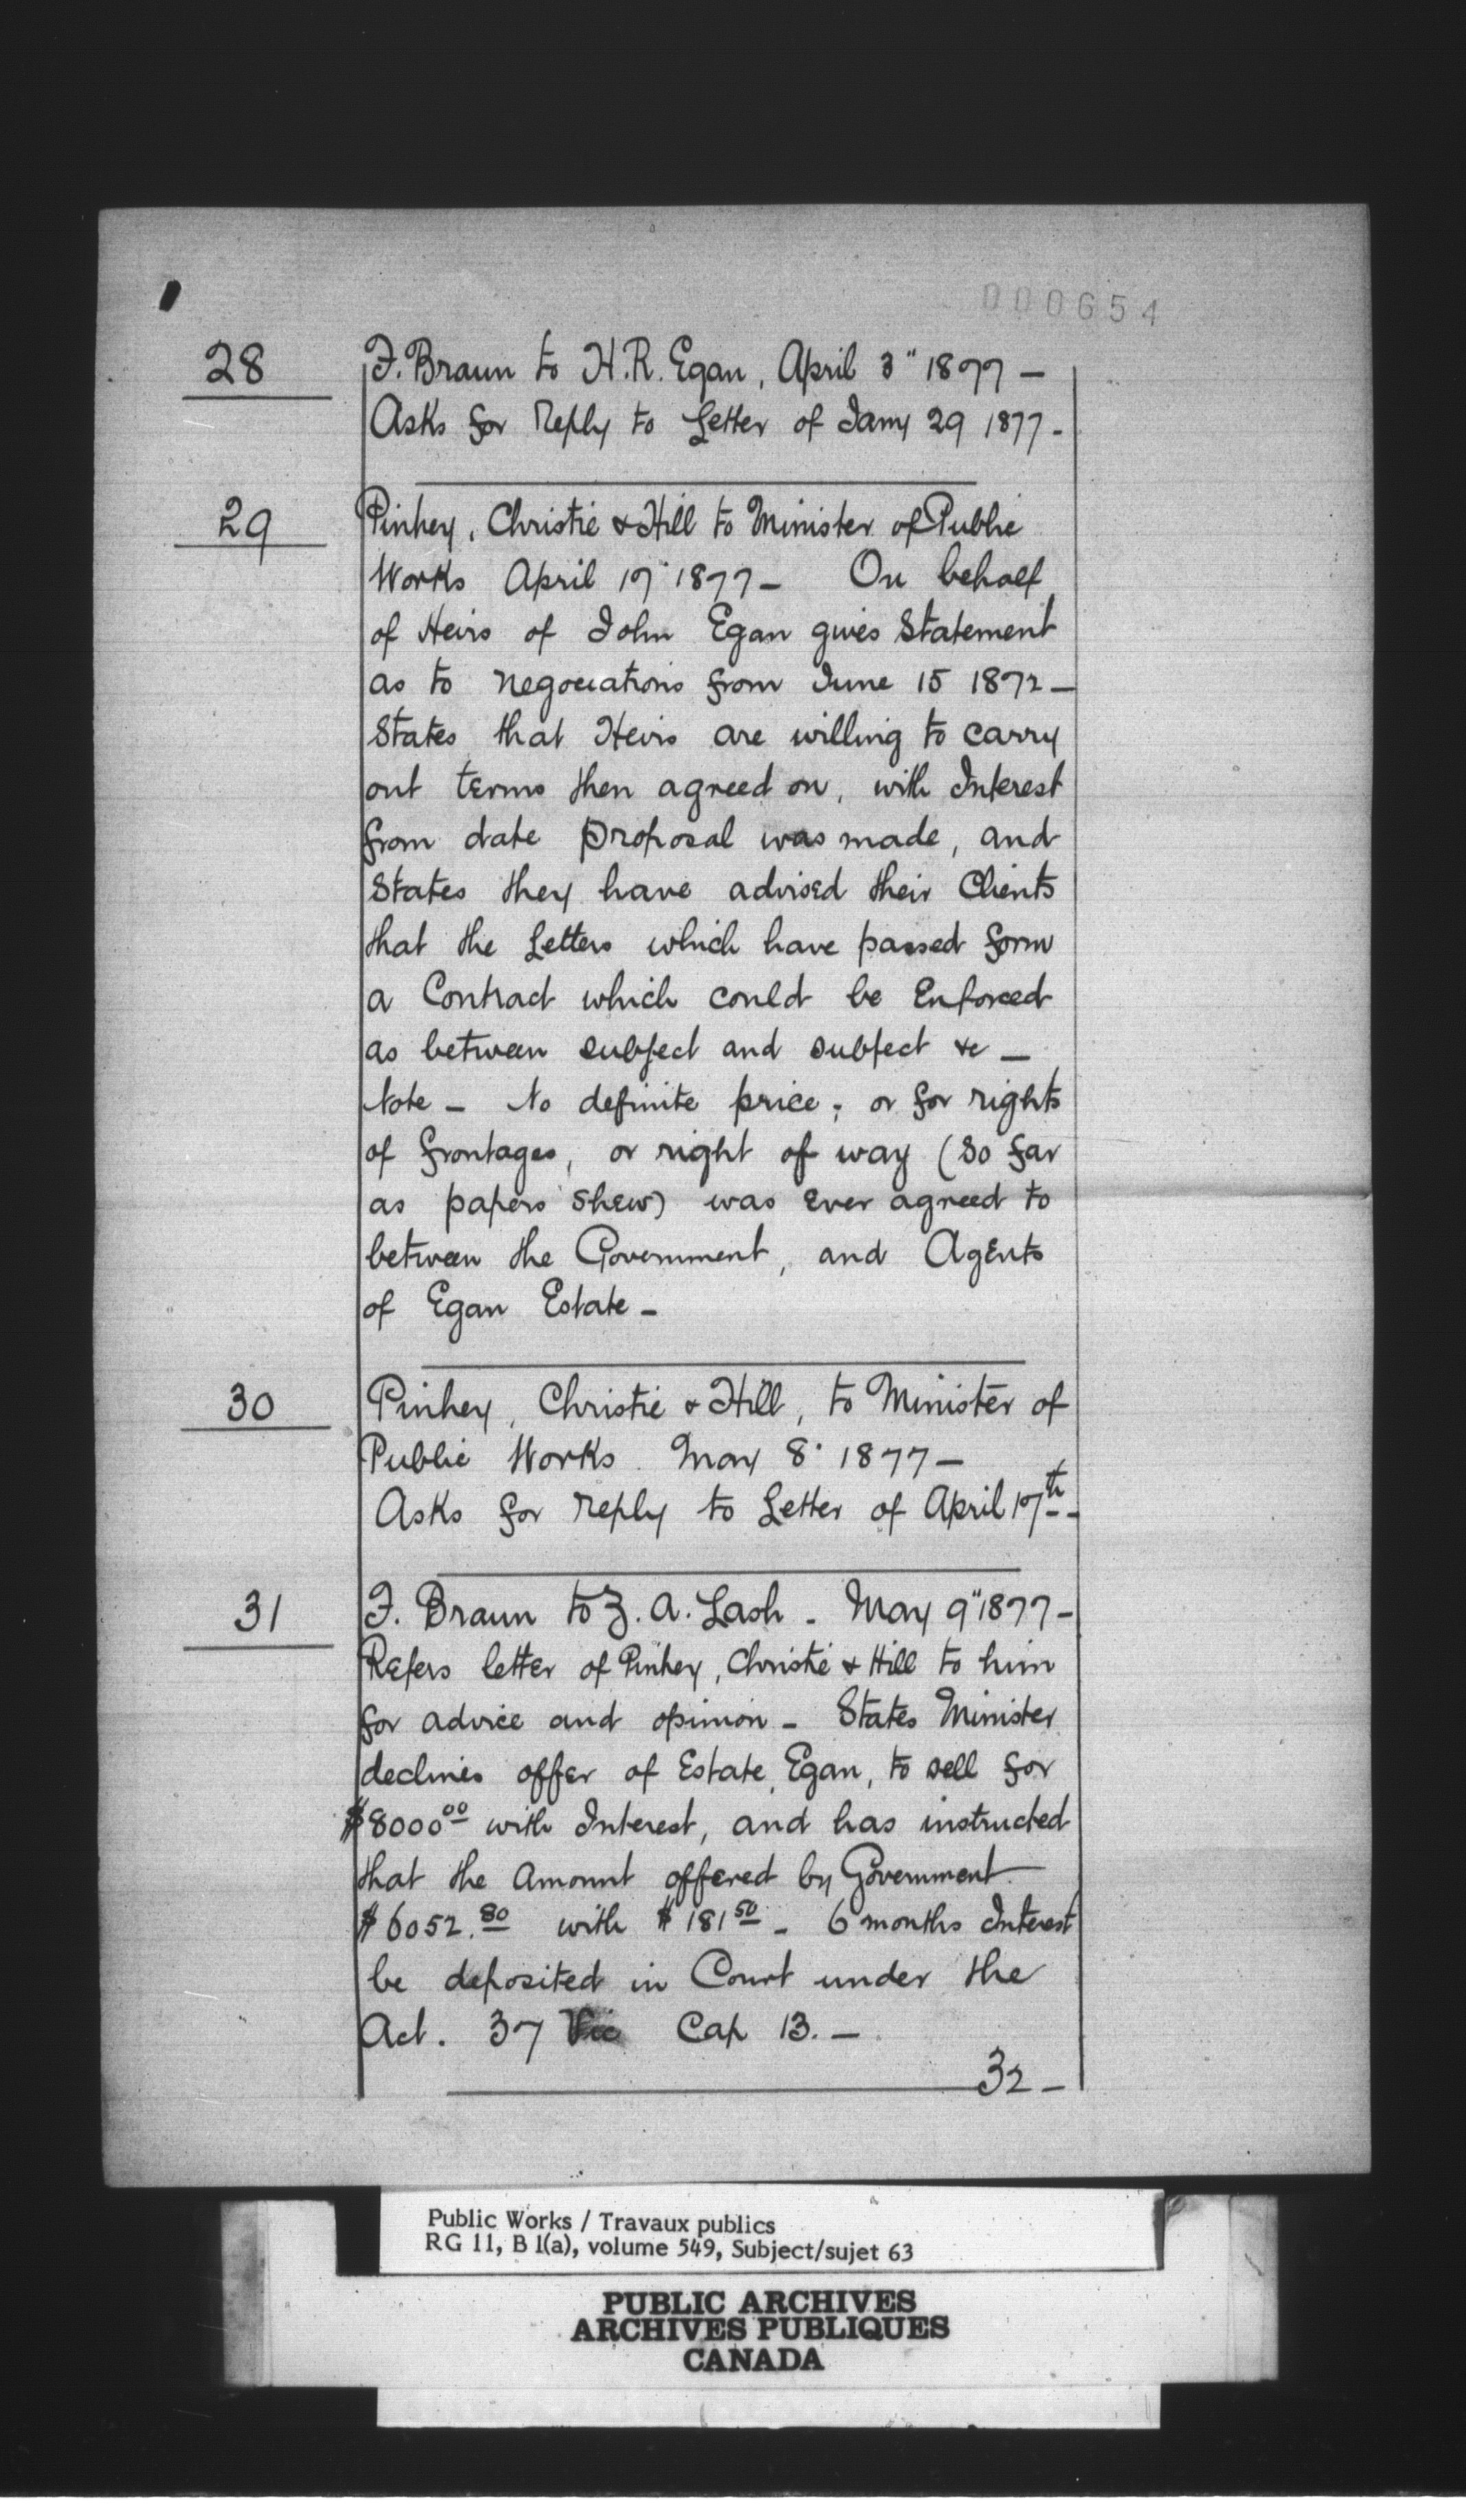 000654
28 F. Braun to H.R. Egan, April 3" 1877 –
Asks for Reply to Letter of Jany 29 1877 –
29 Pinhey, Christie & Hill to Minister of Public
Works April 17" 1877 – On behalf
of Heirs of John Egan gives Statement
as to negociations from June 15 1872 –
States that Heirs are willing to carry
out terms then agreed on, with Interest
from date proposal was made, and
States they have advised their Clients
that the Letters which have passed form
a Contract which could be Enforced
as between subject and subject &c –
Note – No definite price, or for rights
of frontages, or right of way (So far
as papers shew) was ever agreed to
between the Government, and Agents
of Egan Estate –
30 Pinhey, Christie & Hill, to Minister of
Public Works. May 8" 1877 –
Asks for reply to Letter of April 17th –
31 F. Braun to Z. A. Lash – May 9" 1877 –
Refers letter of Pinhey, Christie & Hill to him
for advice and opinion – States Minister
declines offer of Estate Egan, to sell for
$8000 00 with Interest, and has instructed
that the Amount offered by Government
$6052.80 with $181 50 – 6 months Interest
be deposited in Court under the
Act. 37 Vic Cap 13. –
32 –
Public Works / Travaux publics
RG 11, B 1(a), volume 549, Subject/sujet 63
PUBLIC ARCHIVES
ARCHIVES PUBLIQUES
CANADA